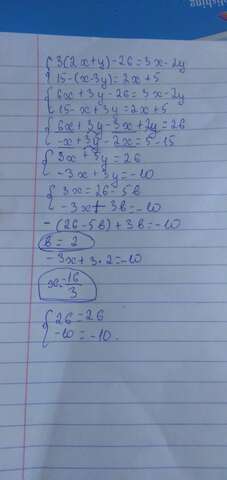 3(2x+y)-26=3x-2y
15-(x-3y)=2x+5
6x+3y-26=3x-2y
15-x+3y=2x+5
6x+3y-3x+2y=26
-x+3y-2x=5-15
3x+5y=26
-3x+3y=-10
3x=26-5в
-3x+3в=-10
-(26-5в)+3в=-10
в=2
-3x+3·2=-10
x=16/3
26=26
-10=-10.